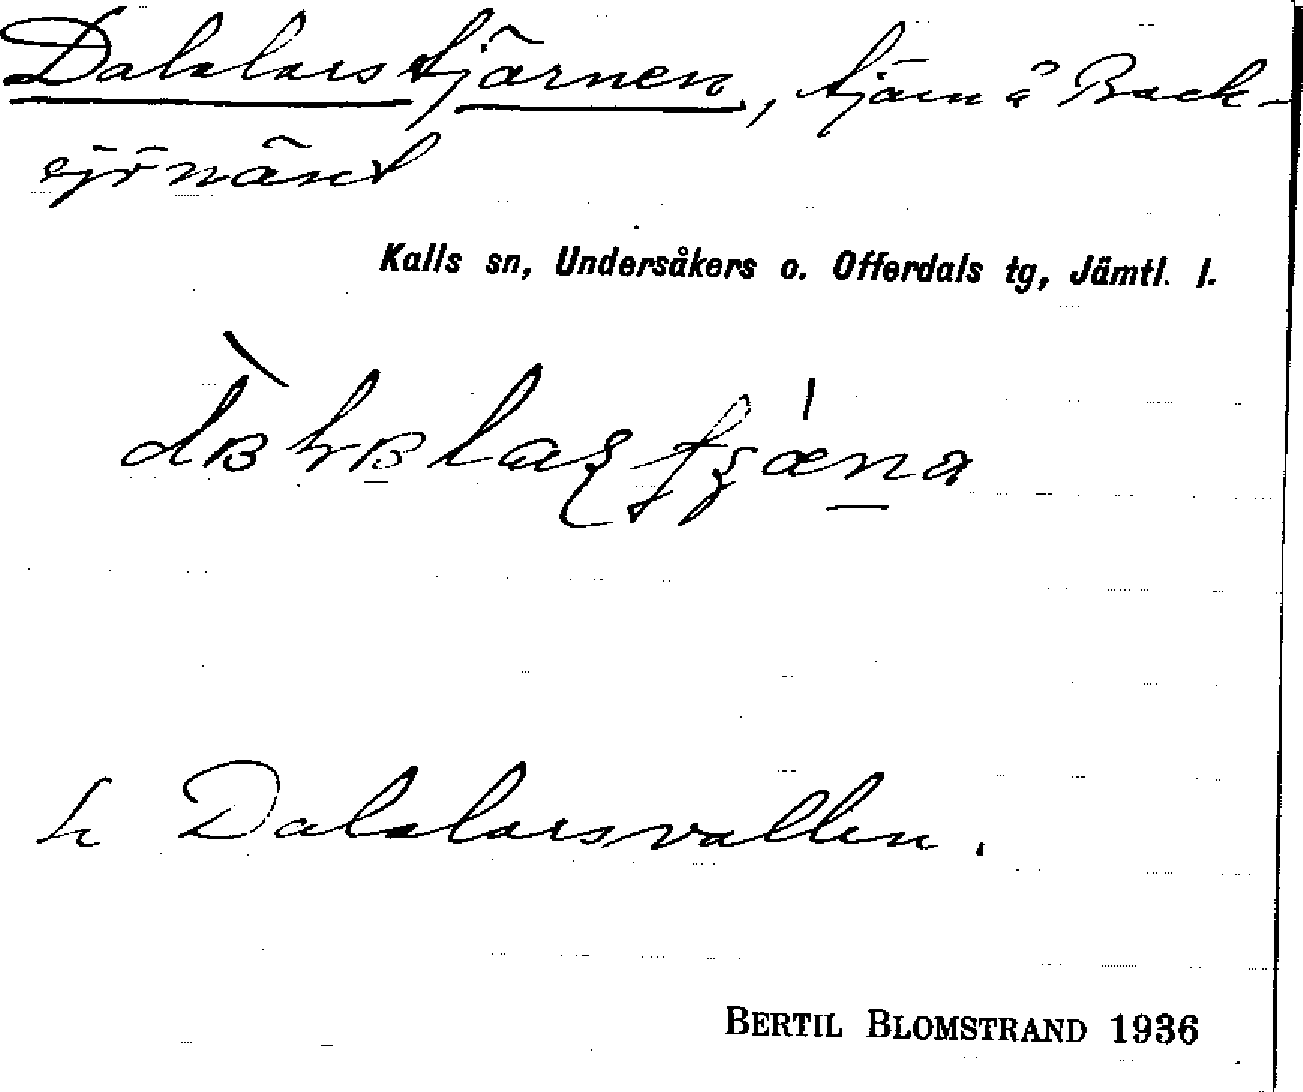 Dalalarstjärnen, tjärn å Back-
sjönäset
Kalls sn, Undersåkers o. Offerdals tg, Jämtl. l.
Dalalarsvallen.
BERTIL BLOMSTRAND 1936